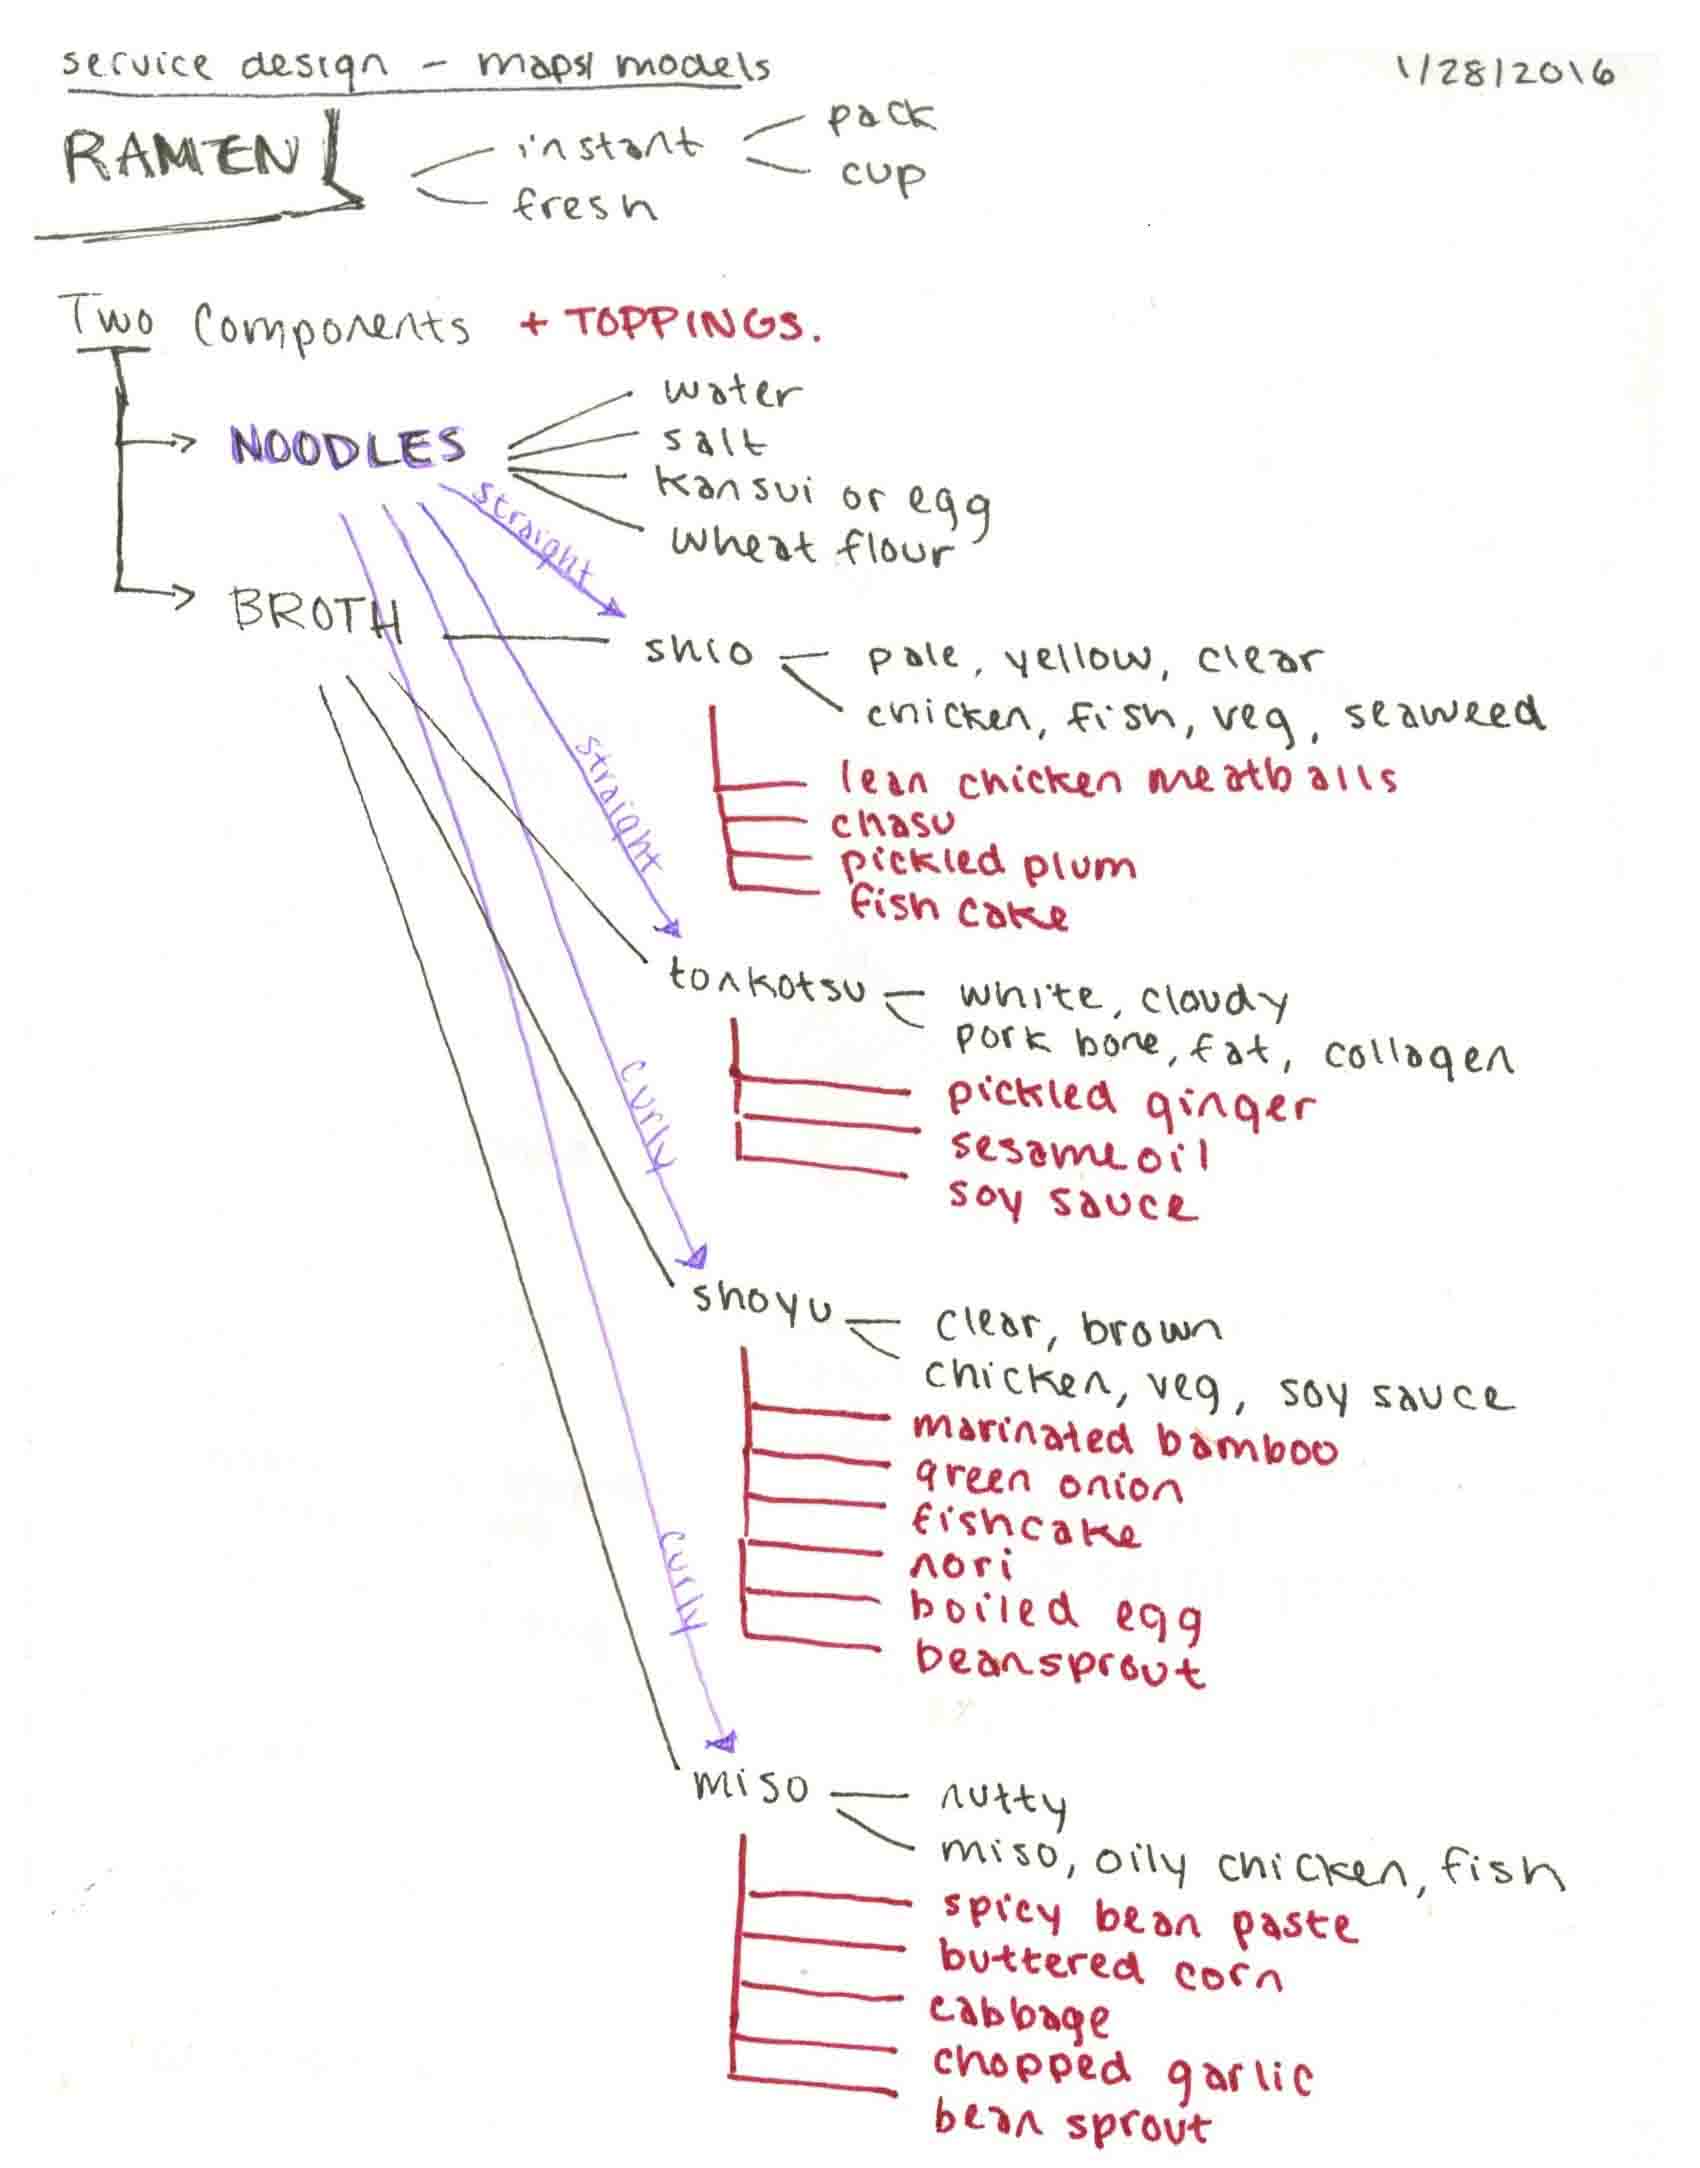 service design - maps/models
1/28/2016
RAMEN
instant
pack
cup
fresh
Two Components + TOPPINGS.
NOODLES
water
salt
kansui or egg
wheat flour
straight
BROTH
shio
pale, yellow, clear
chicken, fish, veg, seaweed
lean chicken meatballs
chasu
pickled plum
fish cake
straight
tonkotsu
white, cloudy
pork bone, fat, collagen
pickled ginger
sesame oil
soy sauce
curly
shoyu
clear, brown
chicken, veg, soy sauce
marinated bamboo
green onion
fishcake
nori
boiled egg
beansprout
curly
miso
nutty
miso, oily chicken, fish
spicy bean paste
buttered corn
cabbage
chopped garlic
bean sprout